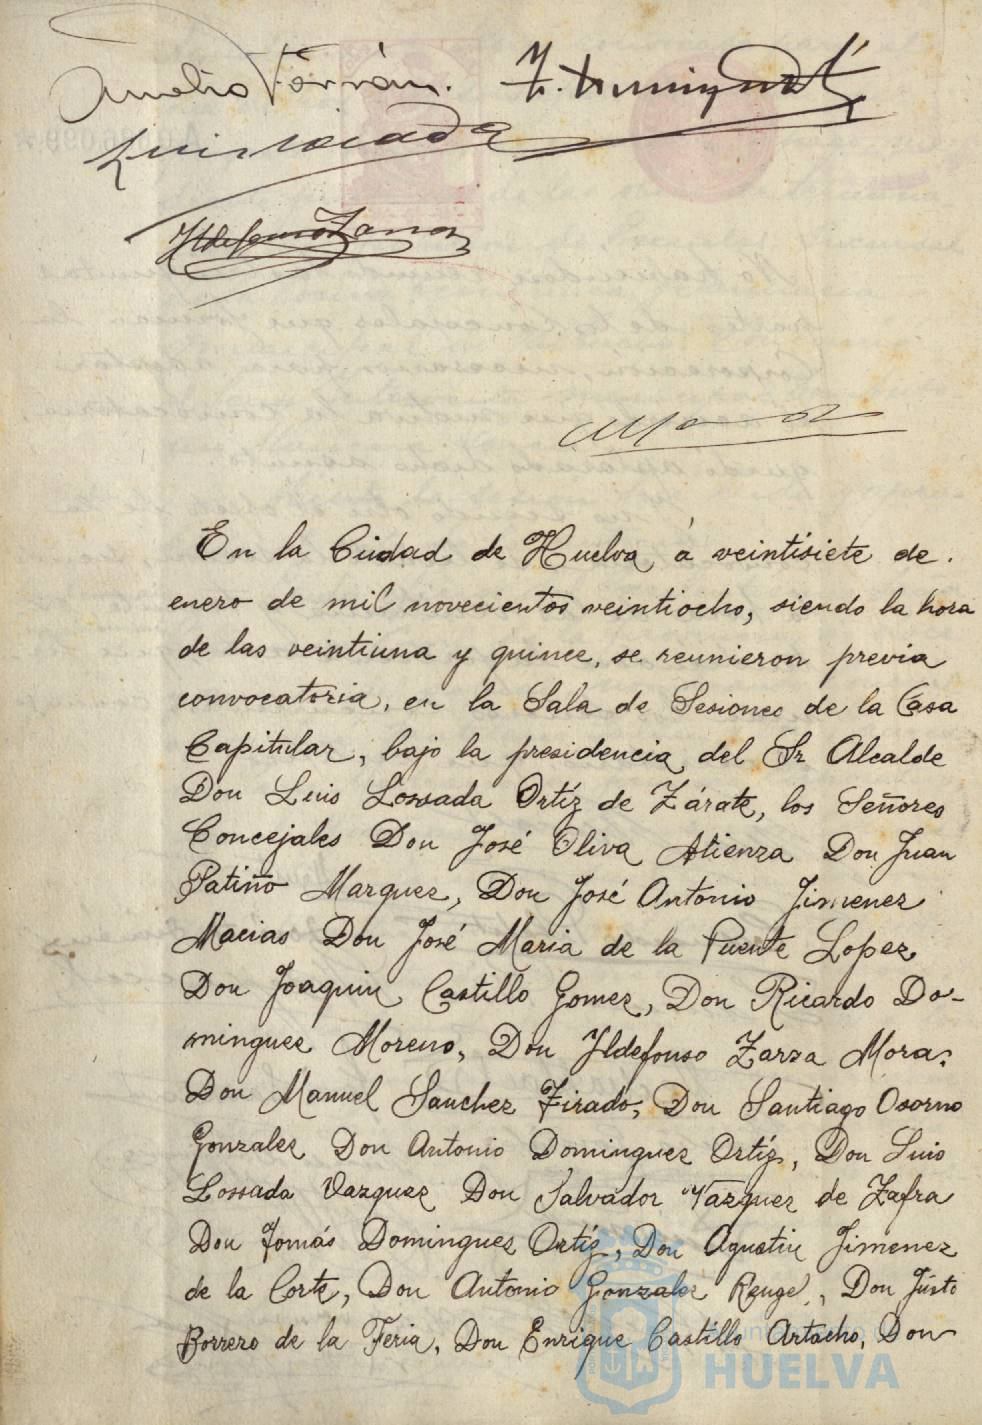 Aurelio Terrán.
Luis Losada
Ildefonso Zarza
En la Ciudad de Huelva á veintisiete de
enero de mil novecientos veintiocho, siendo la hora
de las veintiuna y quince, se reunieron previa
convocatoria, en la Sala de Sesiones de la Casa
Capitular, bajo la presidencia del Sr Alcalde
Don Luis Lossada Ortíz de Zárate, los Señores
Concejales Don José Oliva Atienza Don Juan
Patiño Marquez, Don José Antonio Jimenez
Macias Don José Maria de la Puente Lopez
Don Joaquin Castillo Gomez, Don Ricardo Do-
minguez Moreno, Don Yldefonso Zarza Mora,
Don Manuel Sanchez Tirado, Don Santiago Osorno
Gonzalez Don Antonio Dominguez Ortíz, Don Luis
Lossada Vazquez Don Salvador Vazquez de Zafra
Don Tomás Dominguez Ortíz, Don Agustin Jimenez
de la Corte, Don Antonio Gonzalez Range, Don Justo
Borrero de la Feria, Don Enrique Castillo Artacho, Don
HUELVA